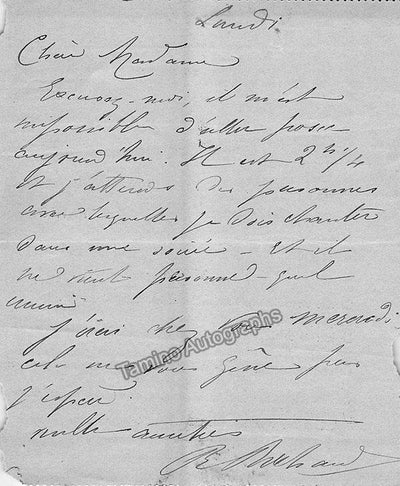 Lundi
Chère Madame
Excusez-moi, il m'est
impossible d'aller poser
aujourd'hui. Il est 2 h 1/4
et j'attends des personnes
avec lesquelles je dois chanter
dans une soirée - et il
ne vient personne - quel
ennui
j'irai chez vous mercredi
cela ne vous gêne pas
j'espère
mille amitiés
Tamino Autographs